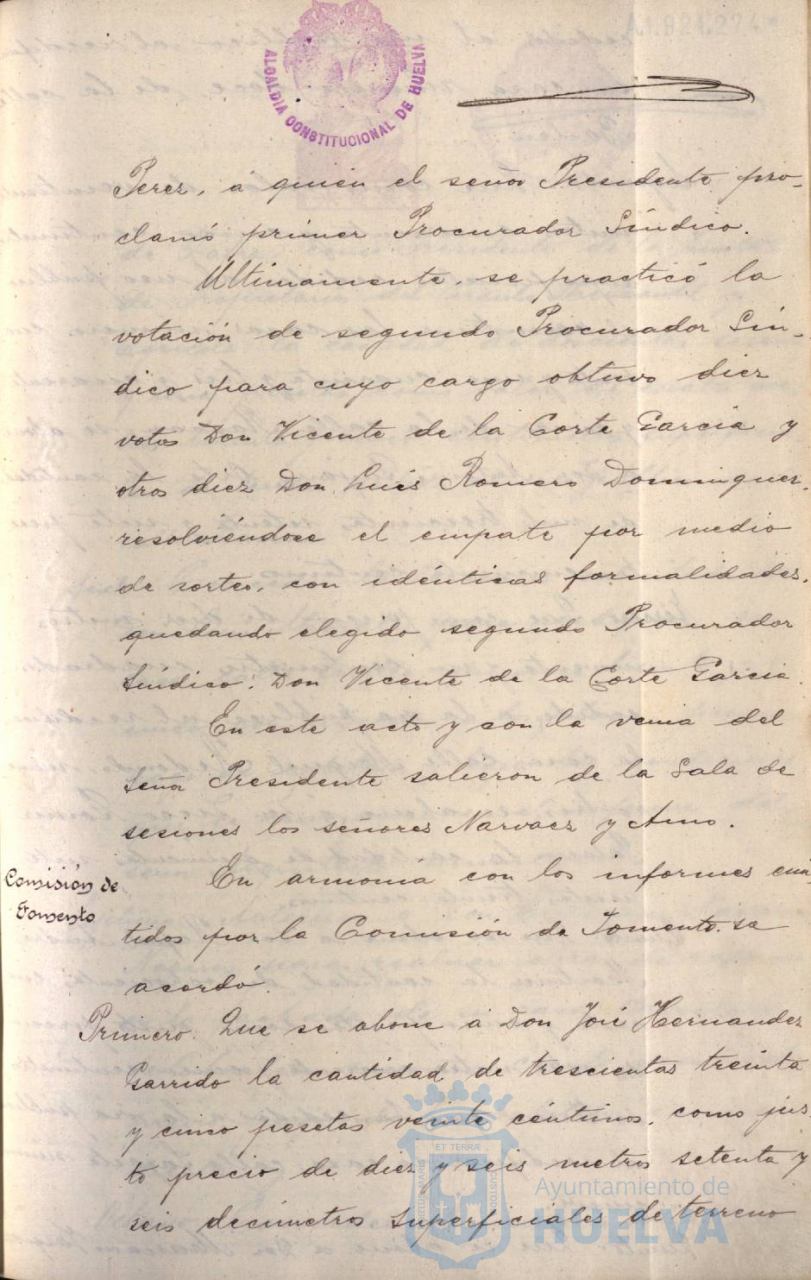 A1.924.274
ALCALDIA CONSTITUCIONAL DE HUELVA
Perez, á quien el señor Presidente pro-
clamó primer Procurador Síndico.
Ultimamente, se practicó la
votación de segundo Procurador Sín-
dico para cuyo cargo obtuvo diez
votos Don Vicente de la Corte Garcia y
otros diez Don Luis Romero Dominguez,
resolviéndose el empate por medio
de sorteo, con idénticas formalidades,
quedando elegido segundo Procurador
Síndico: Don Vicente de la Corte Garcia.
En este acto y con la venia del
Señor Presidente salieron de la Sala de
sesiones los señores Narvaez y Amo.
Comisión de
Fomento
En armonía con los informes emi-
tidos por la Comisión de Fomento se
acordó.
Primero: Que se abone á Don José Hernandez
Garrido la cantidad de trescientas treinta
y cinco pesetas veinte céntimos, como jus
to precio de diez y seis metros setenta y
seis decimetros superficiales de terreno
ET TERRÆ
Ayuntamiento de
HUELVA